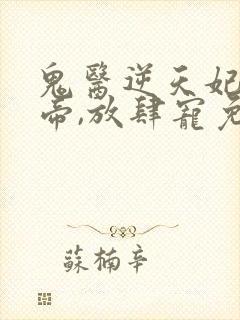 鬼醫逆天妃
帝,放肆寵
蘇楠辛